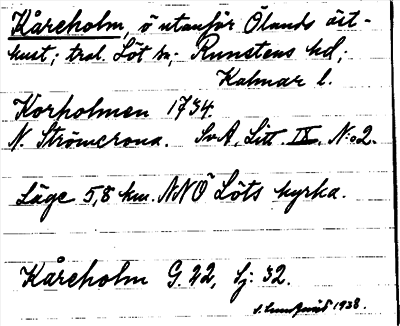 Kåreholm, ö utanför Ölands öst-
kust; tral. Löt sn; Runstens hd;
Kalmar l.
Korholmen 1734.
N. Strömcrona. SvA, Litt. IX. No 2.
Läge 5,8 km. NNÖ Löts kyrka.
Kåreholm G. 22, Sj: 32.
S. Lundqvist 1938.